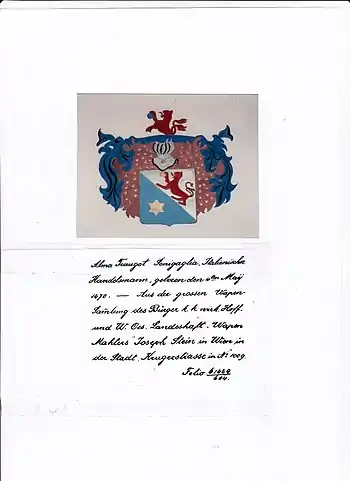 Alma Traugot Senigaglia, Italienischer
Handelsmann, geboren den 4ten Maÿ
1670. — Aus der grossen Wapen-
Samlung des Bürger k. k. wirk. Hoff-
und N. Oes. Landschaft. Wapen
Mahlers Joseph Stein in Wien in
der Stadt, Krugerstrasse in No 1009
Folio